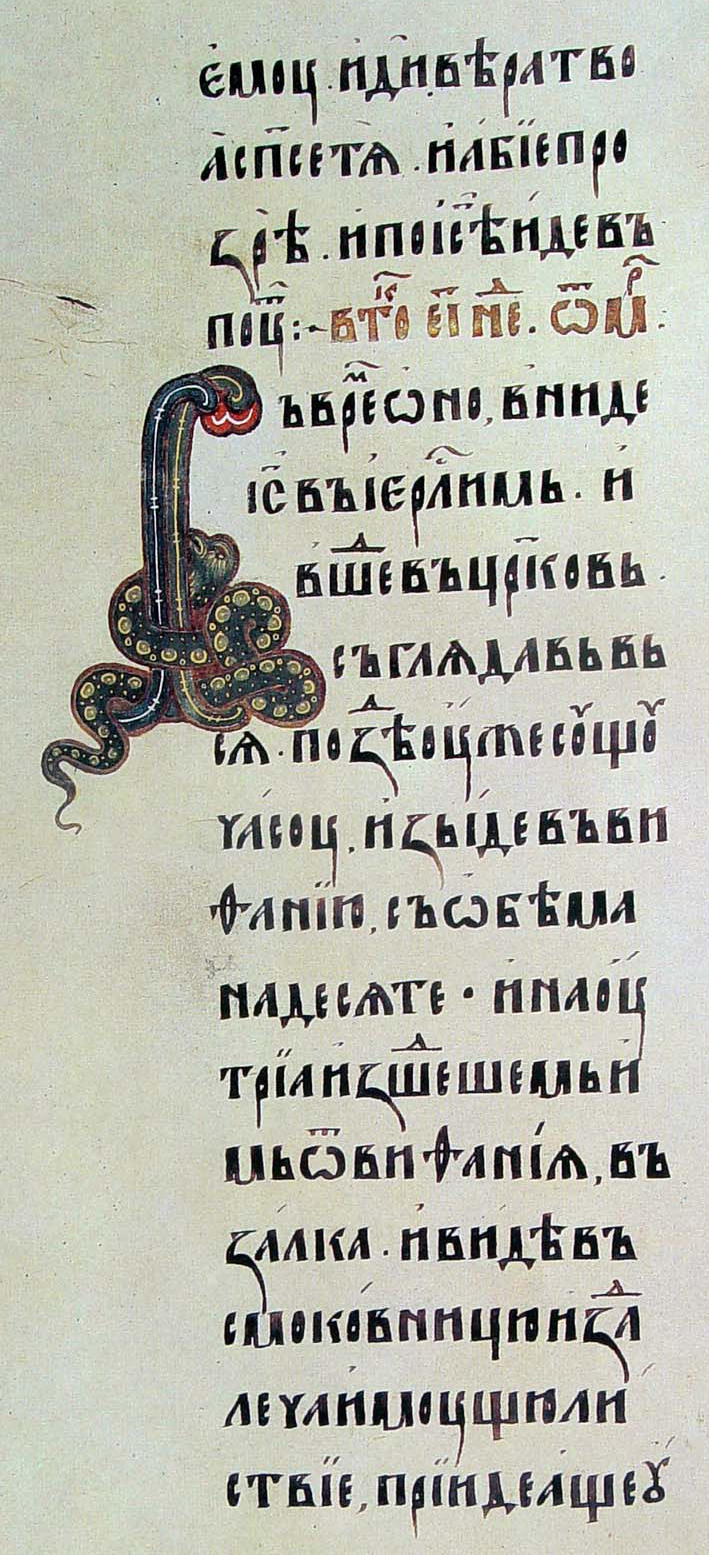 є҆моц. и҆ди҆ вѣратво
а҆сп҃сетѧ. и҆а҆бїепро
ꙁрѣ. и҆поіс҃ѣидевъ
поц҃:~ втⷪ҇о еі҃ нⷣе. ѿмⷬ҇.
ъврⷨеѡно, вниде
іс҃въіерл҃имь. и҆
вшⷣевъцр҃ковь.
съглѧдавьвь
сѧ. поꙁⷣѣоцжесоу҆щоу҆
часоц, и҆ꙁыи҆девъви
ѳанїю, съѡбѣма
надесѧте · инаоц
трїаи҆ꙁшⷣешемьи҆
мьѿвиѳанїѧ, въ
ꙁалка. и҆видѣвъ
смоковницюи҆ꙁⷣа
лечаи҆моцщюли
ствїе, прїидеа҆щеꙋ